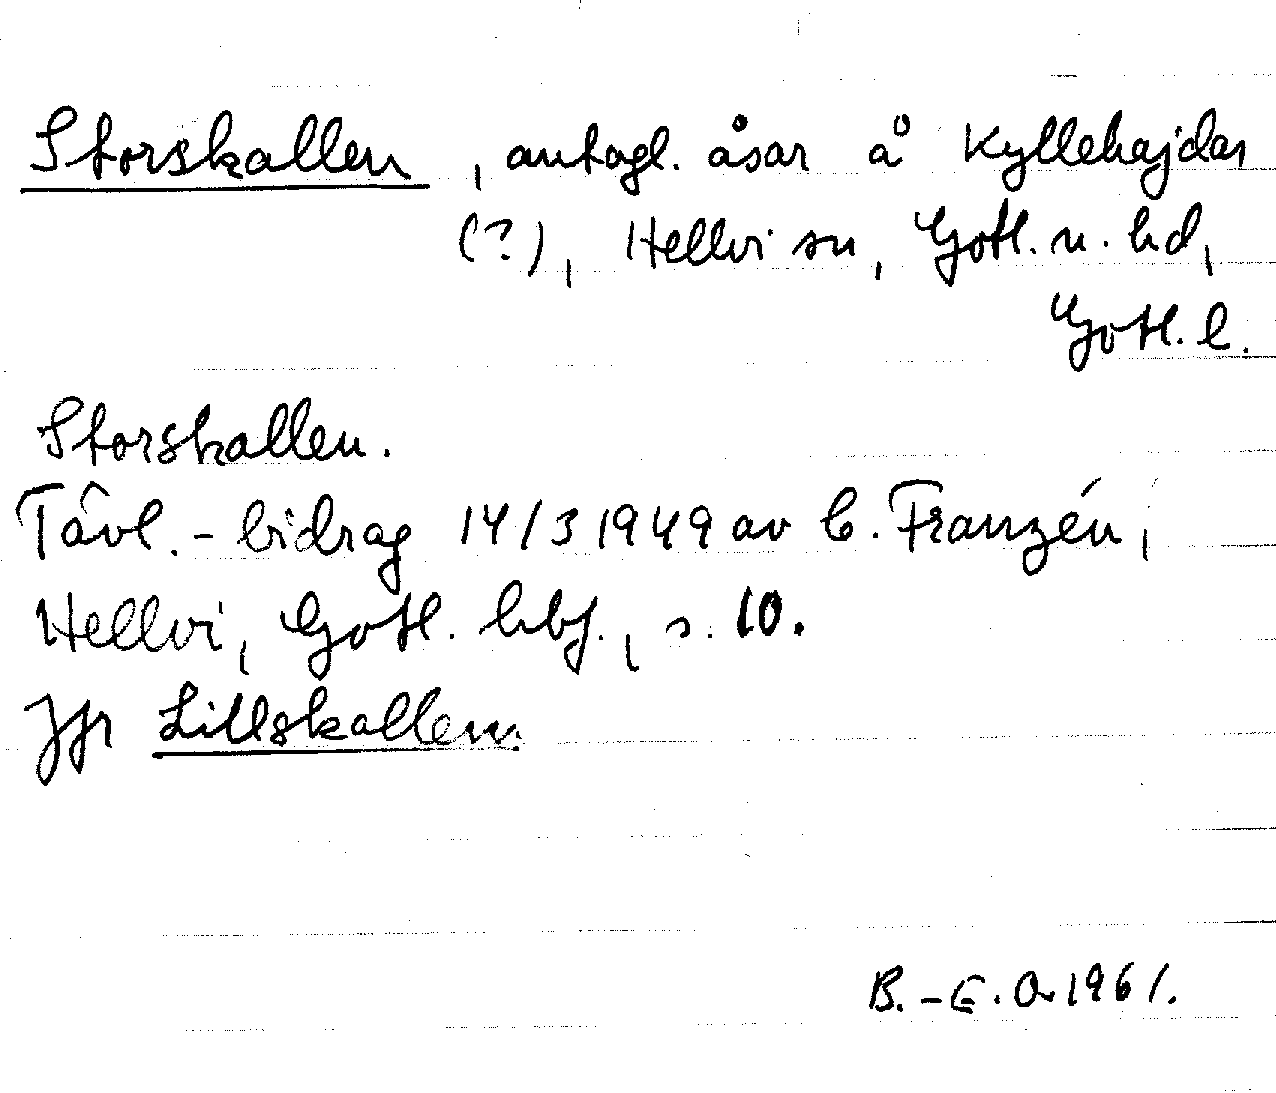 Storskallen, antagl. åsar å Kyllehajdar
(?), Hellvi sn, Gotl. n. hd,
Gotl. l.
Storskallen.
Tävl.-bidrag 14/3 1949 av C. Franzén,
Hellvi, Gotl. hbf., s. 10.
Jfr Lillskallen.
B.-E. O. 1961.